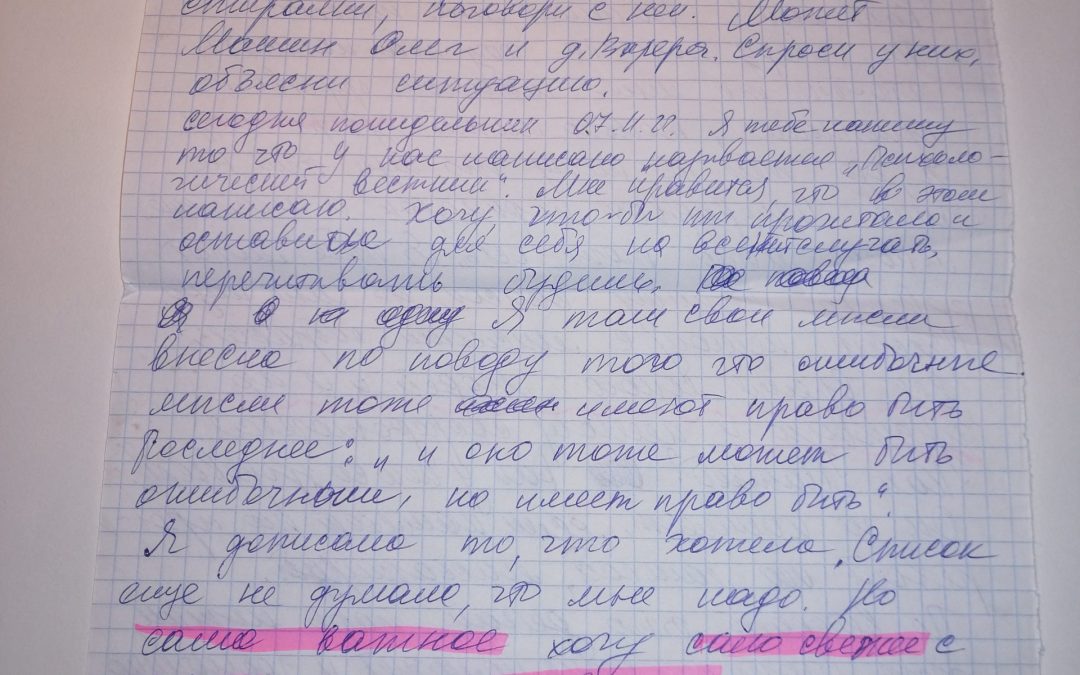 стиралки, поговори с ней. Может
Машин Олег и д. Валера. Спроси у них,
объясни ситуацию.
сегодня понидельник 07.11.22. Я тебе напишу
то что у нас написано называется „Психоло-
гический вестник". Мне нравится, что в этом
написано. Хочу, что-бы ты прочитала и
оставила для себя на всё
перечитывать будешь.
Я там свои мысли
внесла по поводу того что ошибочные
мысли тоже имеют право быть
Последнее: „и оно тоже может быть
ошибочным, но имеет право быть".
Я дописала то, что хотела. Список
еще не думала, что мне надо. Но
само важное хочу сало свежее с